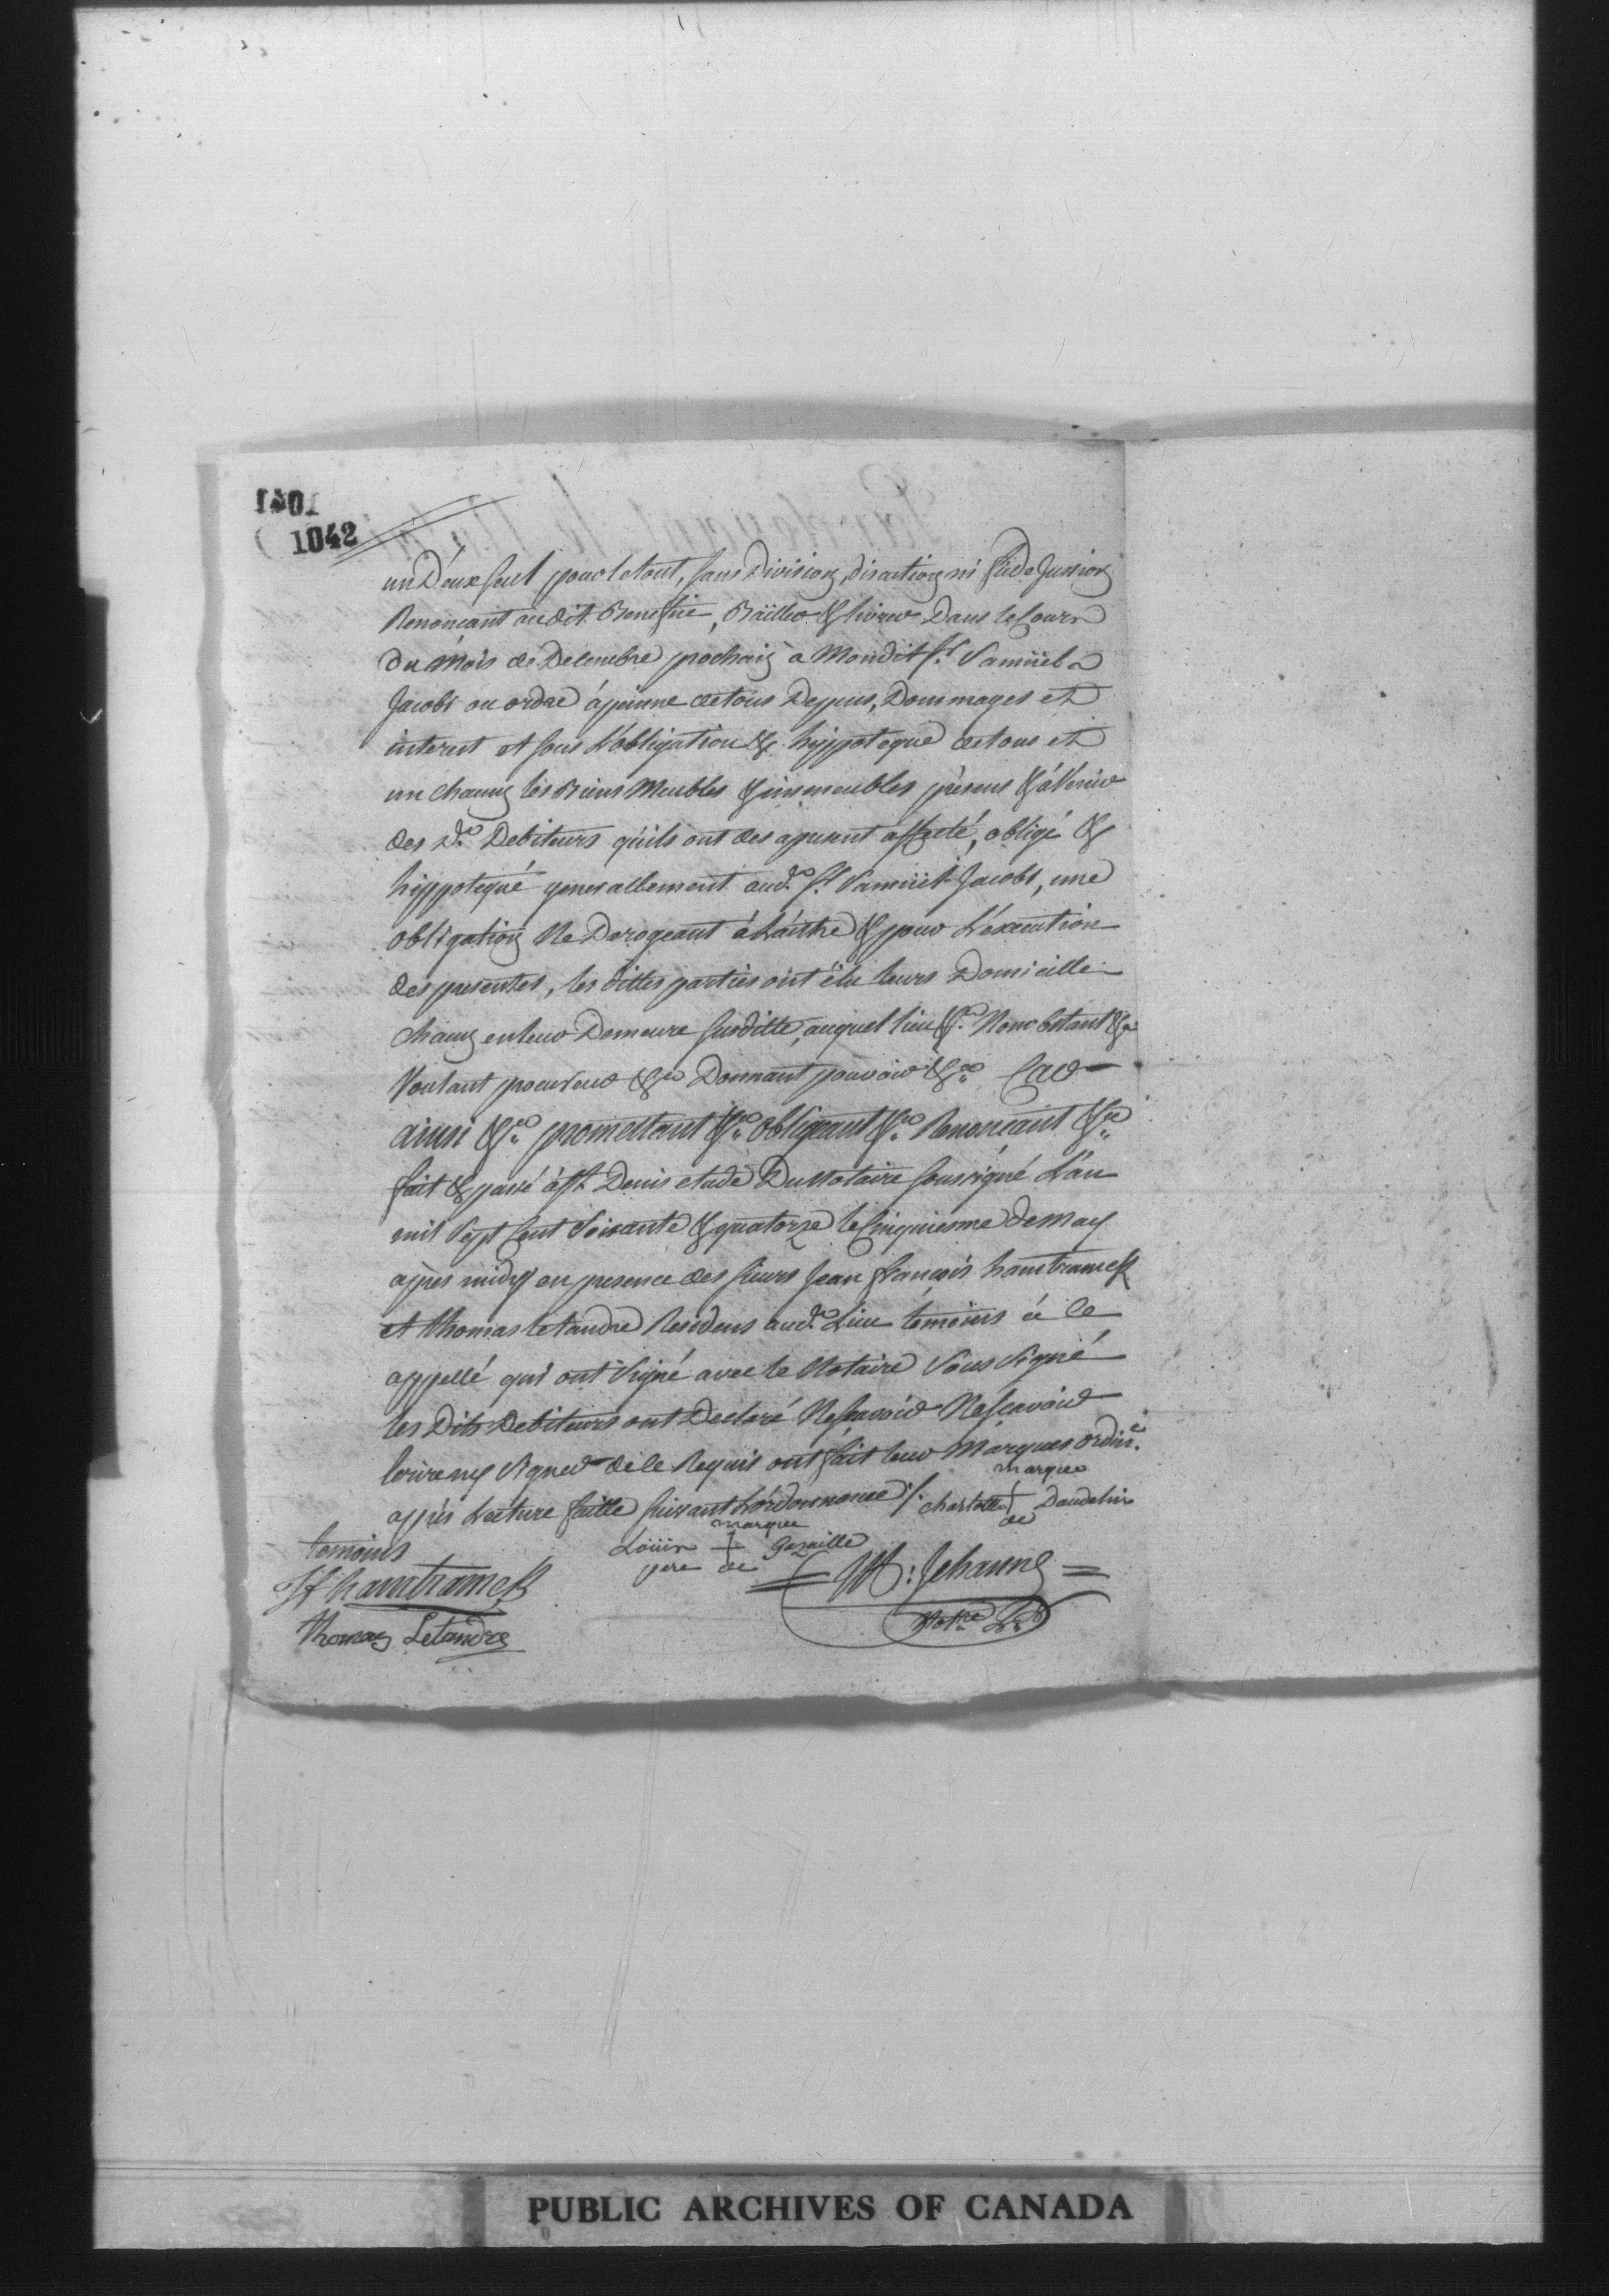 1401
1042
un D'eux seul pour le tout, sans Division, discution ni fide Jussion
Renonçant au dit Benefice, Bailler & livrer Dans le Cours
du mois de Decembre prochain a Mondit Sr. Samüel
Jacobs ou ordre à peinne de tous Depens, Dommages et
interest et sous L'obligation & hyppoteque de tous et
un chacun les Biens Meubles & immeubles présens & àVenir
des d. Debiteurs qu'ils ont des apresent affecté, obligé &
hyppotequé generallement aud. Sr. Samüel Jacobs, une
obligation Ne Derogeant à L'autre & pour L'éxecution
des presentes, les dittes parties ont élu leurs Domicille
chacun en leur Demeure susditte, auquel lieu &a. Nonobstant &a
Voulant &a Donnant pouvoir &a Car
ainsi &a. promettant &a. obligeant &a. Renonçant &a.
fait & passé à St. Denis etude Du Notaire soussigné L'an
mil Sept Cent Soixante & quatorze le Cinquiesme de May
apres midy en presence des sieurs Jean François hamtramck
et thomas letandre Residens aud. Lieu temoins à ce
appellé qui ont Signé avec le Notaire Sous Signé
les Dits Debiteurs ont Declaré Ne Scavoir
Ecrire ny Signer de ce Requis ont fait leur Marques ordinre.
après Lecture faitte suivant L'ordonnance ./. charlotte + Daudelin
marque
de
temoins
marque
Loüis + Gazaille
pere de
Jf hamtramck
M: Jehanne
Thomas Letandre
Notre